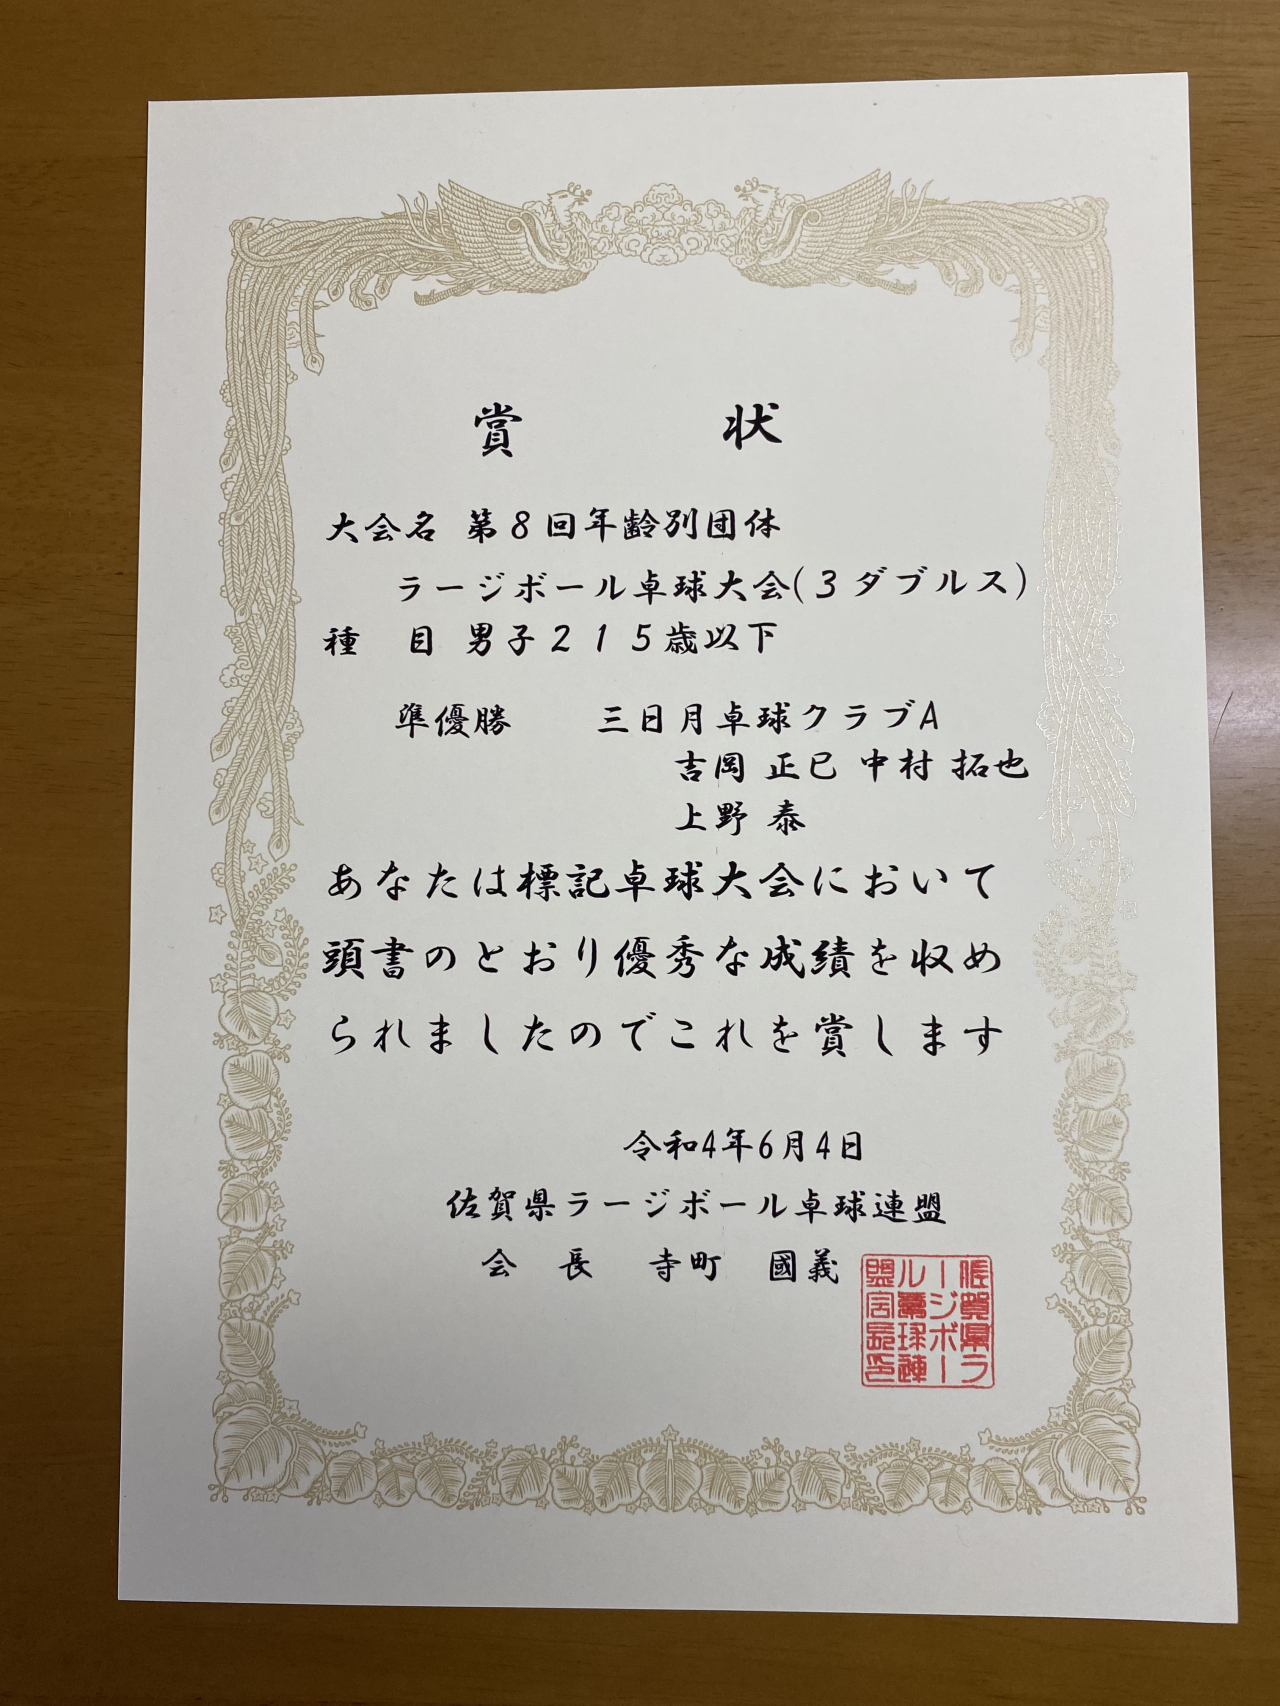 賞 状
大会名 第8回年齢別団体
ラージボール卓球大会(3ダブルス)
種 目 男子215歳以下
準優勝 三日月卓球クラブA
吉岡 正已 中村 拓也
上野 泰
あなたは標記卓球大会において
頭書のとおり優秀な成績を収め
られましたのでこれを賞します
令和4年6月4日
佐賀県ラージボール卓球連盟
会 長 寺町 國義
佐賀県ラ
ージボー
ル卓球連
盟会長印